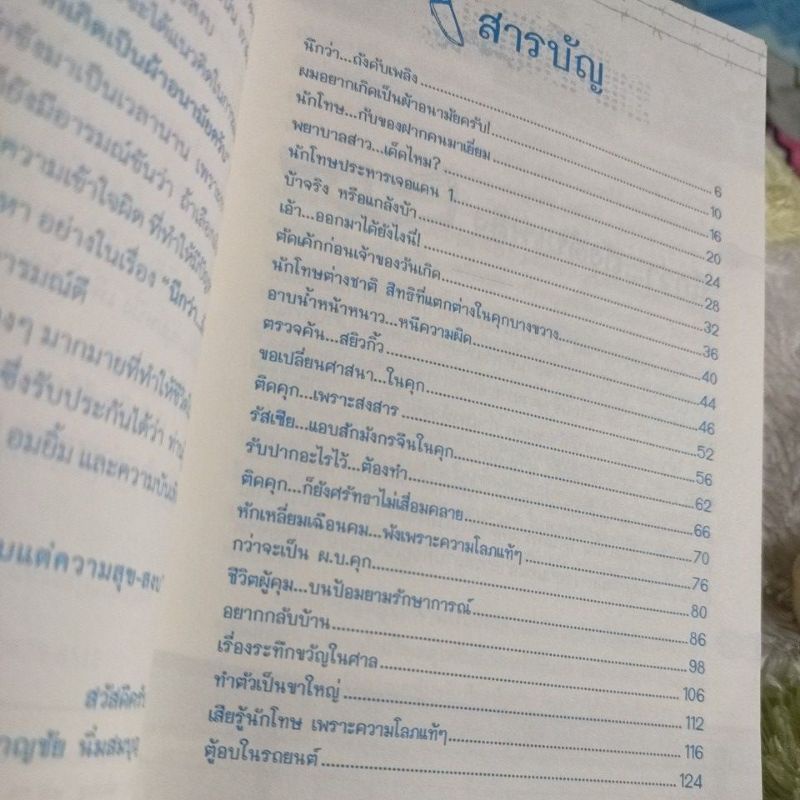 ได้แนวคิดในการ
เกิดเป็นผ้าอนามัยครับ
มาเป็นเวลานาน เพราะ
ยังมีอารมณ์ขันว่า ถ้าเลือก
ความเข้าใจผิด ที่ทำให้
หา อย่างในเรื่อง "นึกว่า...
อารมณ์ดี
มากมายที่ทำให้ชีวิต
ซึ่งรับประกันได้ว่า ท่าน
อมยิ้ม และความบันเทิง
แต่ความสุข-สงบ
สวัสดีครับ
ชาญชัย นิ่มสมบุญ
สารบัญ
นึกว่า...ถังดับเพลิง 6
ผมอยากเกิดเป็นผ้าอนามัยครับ! 10
นักโทษ...กับของฝากคนมาเยี่ยม 16
พยาบาลสาว...เด็ดไหม? 20
นักโทษประหารเจอแดน 1 24
บ้าจริง หรือแกล้งบ้า 28
เอ้า...ออกมาได้ยังไงนี่! 32
ตัดเค้กก่อนเจ้าของวันเกิด 36
นักโทษต่างชาติ สิทธิที่แตกต่างในคุกบางขวาง 40
อาบน้ำหน้าหนาว...หนีความผิด 44
ตรวจค้น...สยิวกิ้ว 46
ขอเปลี่ยนศาสนา...ในคุก 52
ติดคุก...เพราะสงสาร 56
รัสเซีย...แอบสักมังกรจีนในคุก 62
รับปากอะไรไว้...ต้องทำ 66
ติดคุก...ก็ยังศรัทธาไม่เสื่อมคลาย 70
หักเหลี่ยมเฉือนคม...พังเพราะความโลภแท้ๆ 76
กว่าจะเป็น ผ.บ.คุก 80
ชีวิตผู้คุม...บนป้อมยามรักษาการณ์ 86
อยากกลับบ้าน 98
เรื่องระทึกขวัญในศาล 106
ทำตัวเป็นขาใหญ่ 112
เสียรู้นักโทษ เพราะความโลภแท้ๆ 116
ตู้อบในรถยนต์ 124